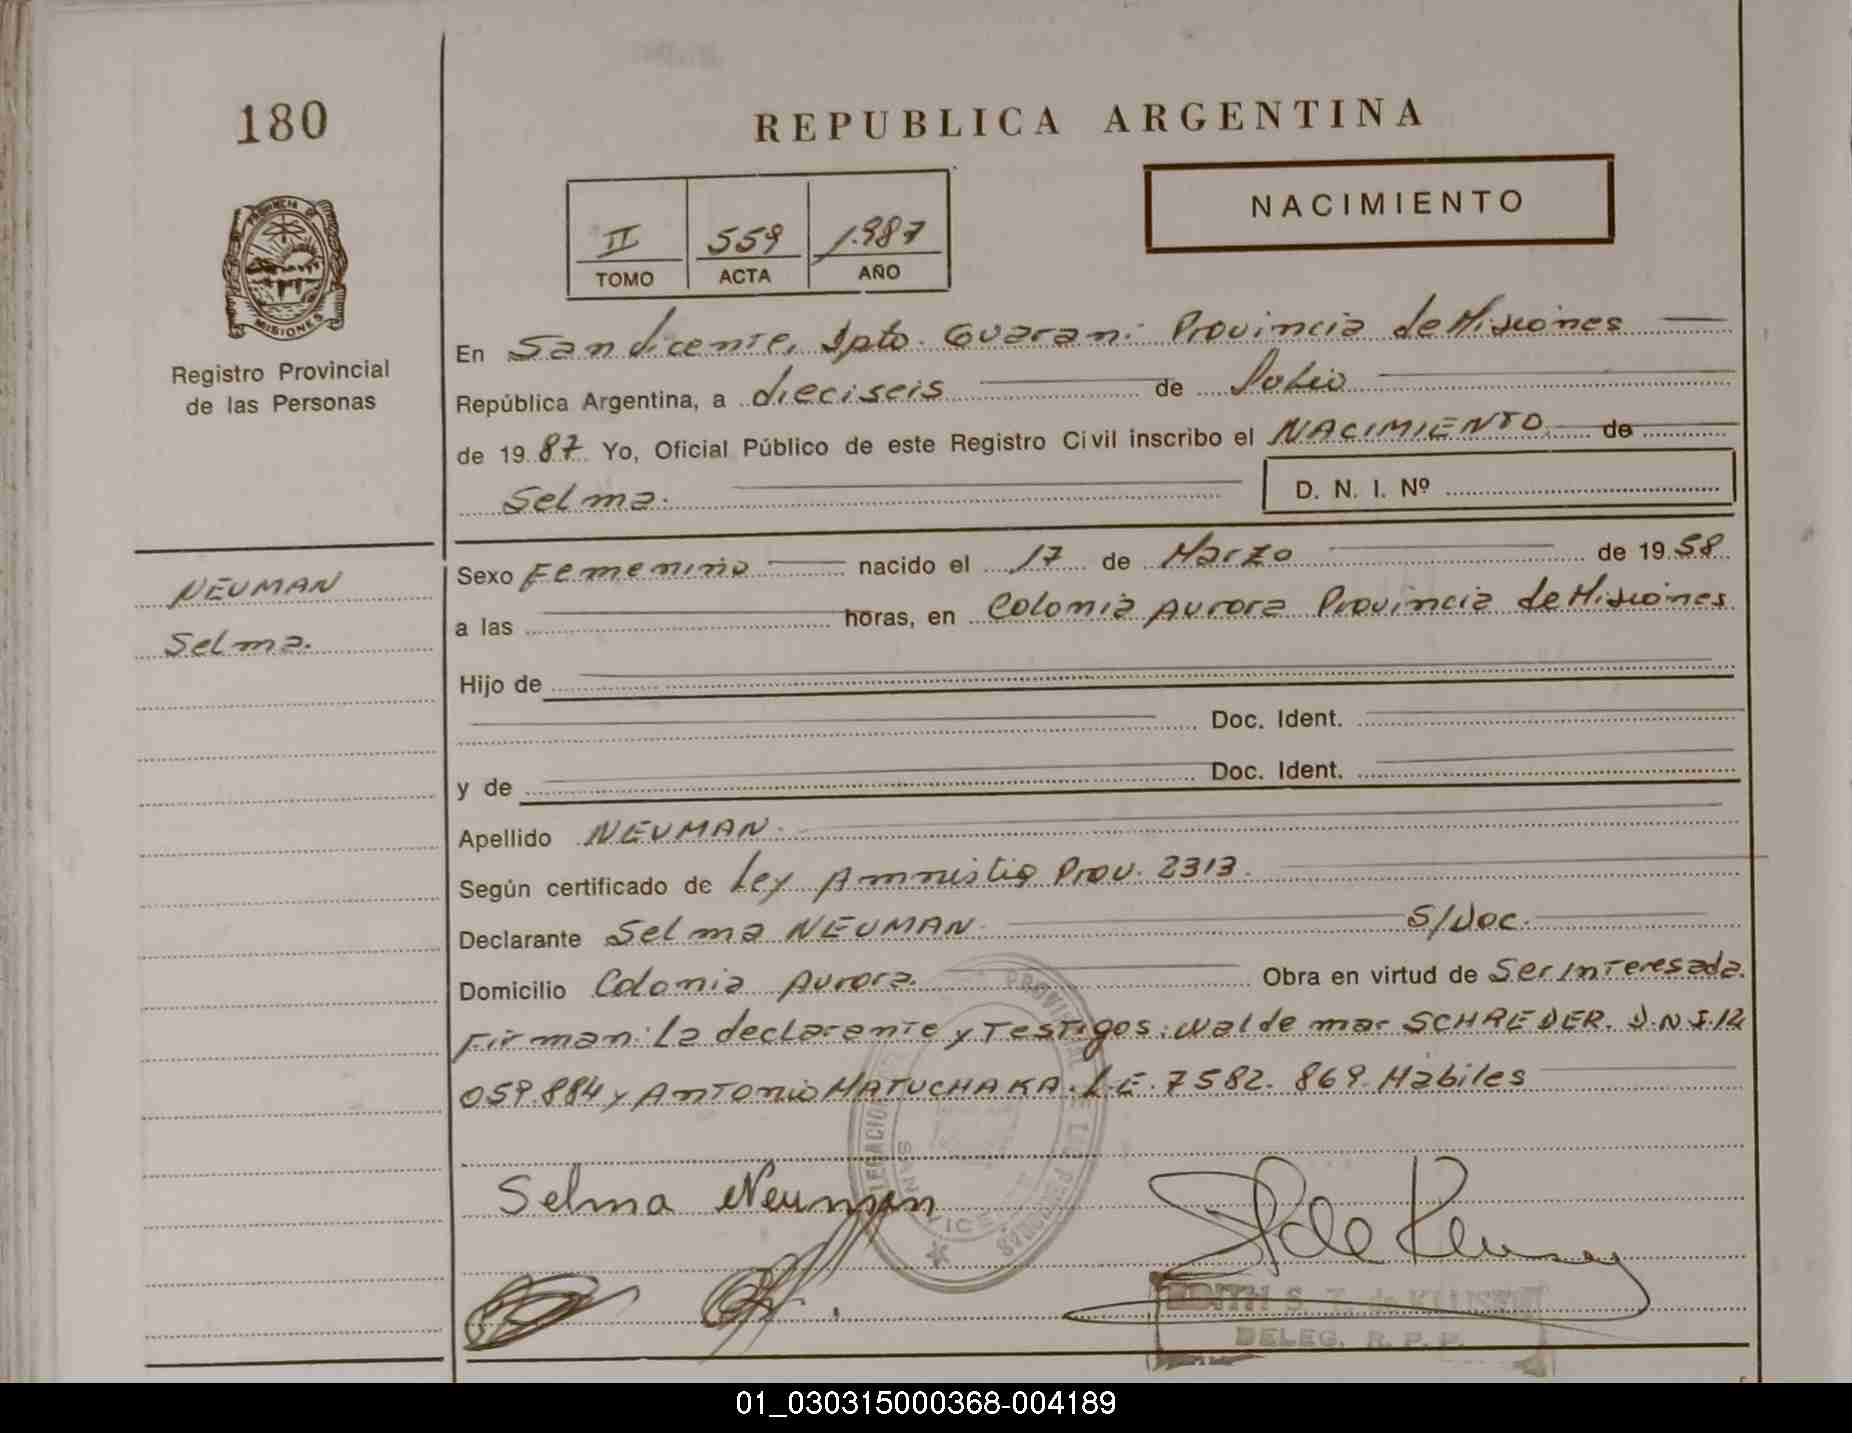 180
REPUBLICA ARGENTINA
NACIMIENTO
II 559 1.987
TOMO ACTA AÑO
PROVINCIA DE
MISIONES
Registro Provincial
de las Personas
En San Vicente, Dpto. Guaraní Provincia de Misiones
República Argentina, a dieciseis de Julio
de 19 87 Yo, Oficial Público de este Registro Civil inscribo el NACIMIENTO de
Selma.
D. N. I. Nº
NEUMAN
Selma.
Sexo Femenino nacido el 17 de Marzo de 19 58
a las horas, en Colonia Aurora Provincia de Misiones
Hijo de
Doc. Ident.
y de Doc. Ident.
Apellido NEUMAN.
Según certificado de Ley Amnistia Prov. 2313.
Declarante Selma NEUMAN S/Doc.
Domicilio Colonia Aurora. Obra en virtud de Ser Interesada.
Firman: La declarante y Testigos: Waldemar SCHREDER. D.N.I. 12
059.884 y Antonio MATUCHAKA. L.E. 7582.869. Habiles
Selma Neuman
EDITH S. Z. de
DELEG. R. P. P.
01_030315000368-004189